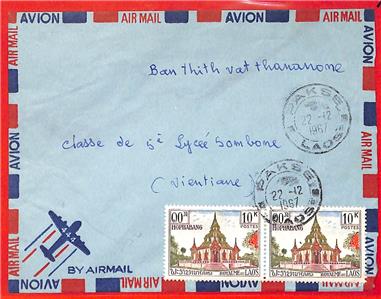 AVION AIR MAIL AVION AIR MAIL AVION AIR MAIL
Ban Thith vat thananone
PAKSE
22-12
1967
LAOS
classe de 5è Lycée Sombone
(Vientiane)
PAKSE
22-12
1967
LAOS
BY AIRMAIL
10K
HOPHABANG
POSTES
ROYAUME DU LAOS
10K
HOPHABANG
POSTES
ROYAUME DU LAOS
AIR MAIL
AVION
AIR MAIL
AVION
AIR MAIL
AVION
AIR MAIL